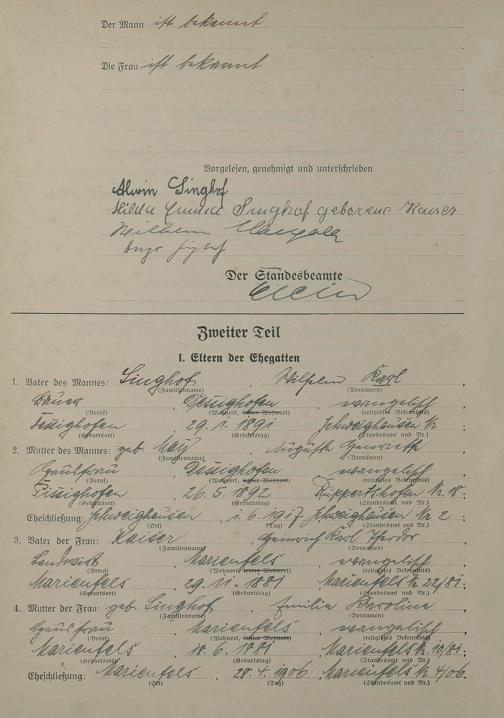 Der Mann ist bekannt
Die Frau ist bekannt
Vorgelesen, genehmigt und unterschrieben
Alwin Singhof
Singhof geborene Kaiser
Wilhelm
Der Standesbeamte
Zweiter Teil
I. Eltern der Ehegatten
1. Vater des Mannes: Singhof, Wilhelm Karl,
(Familienname) (Vornamen)
Bauer, evangelisch,
(Beruf) (Wohnort, letzter Wohnort) (religiöses Bekenntnis)
29.1.1891, Schweighausen
(Geburtsort) (Geburtstag) (Standesamt und Nr.)
2. Mutter des Mannes: geb. May, Auguste Henriette
(Familienname) (Vornamen)
Hausfrau, evangelisch,
(Beruf) (Wohnort, letzter Wohnort) (religiöses Bekenntnis)
26.5.1892, Ruppertshofen Nr. 18;
(Geburtsort) (Geburtstag) (Standesamt und Nr.)
Eheschließung: Schweighausen, 1.6.1917, Schweighausen Nr 2.
(Ort) (Tag) (Standesamt und Nr.)
3. Vater der Frau: Kaiser, Heinrich Karl Theodor
(Familienname) (Vornamen)
Landwirt, Marienfels, evangelisch,
(Beruf) (Wohnort, letzter Wohnort) (religiöses Bekenntnis)
Marienfels, 29.11.1881, Marienfels Nr 22/81;
(Geburtsort) (Geburtstag) (Standesamt und Nr.)
4. Mutter der Frau: geb. Singhof, Emilie Karoline,
(Familienname) (Vornamen)
Hausfrau, Marienfels, evangelisch,
(Beruf) (Wohnort, letzter Wohnort) (religiöses Bekenntnis)
Marienfels, 18.6.1881, Marienfels Nr. 10/81;
(Geburtsort) (Geburtstag) (Standesamt und Nr.)
Eheschließung: Marienfels, 28.4.1906, Marienfels Nr. 4/06.
(Ort) (Tag) (Standesamt und Nr.)